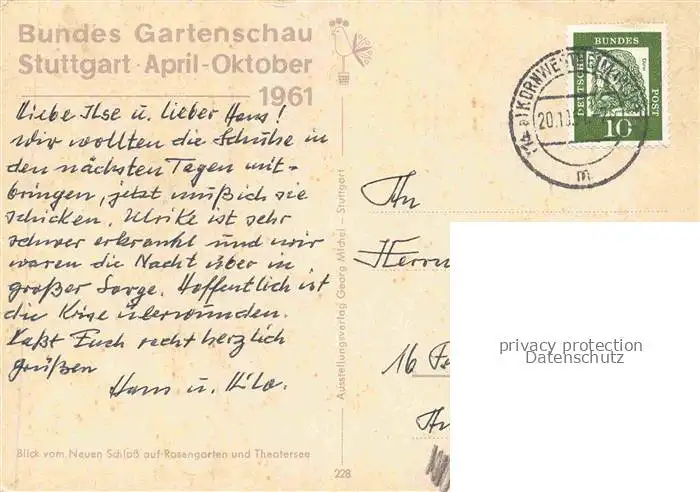 Bundes Gartenschau
Stuttgart · April-Oktober
1961
Liebe Ilse u. lieber Hans!
Wir wollten die Schuhe in
den nächsten Tagen mit-
bringen, jetzt muß ich sie
schicken. Ulrike ist sehr
schwer erkrankt und wir
waren die Nacht über in
großer Sorge. Hoffentlich ist
die Krise überwunden.
Laßt Euch recht herzlich
grüßen
Hans u. Hilo.
Blick vom Neuen Schloß auf Rosengarten und Theatersee
228
Ausstellungsverlag Georg Michel - Stuttgart
DEUTSCHE BUNDES POST
10
20.10.
m
An
Herrn
16
privacy protection
Datenschutz